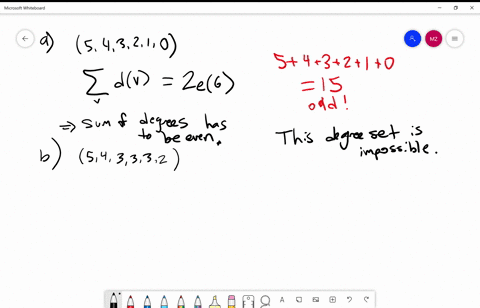 Microsoft Whiteboard
MZ
a) (5, 4, 3, 2, 1, 0)
∑ d(v) = 2e(G)
v
⇒ sum of degrees has
to be even.
5+4+3+2+1+0
= 15
odd!
This degree set is
impossible.
b) (5, 4, 3, 3, 3, 2)